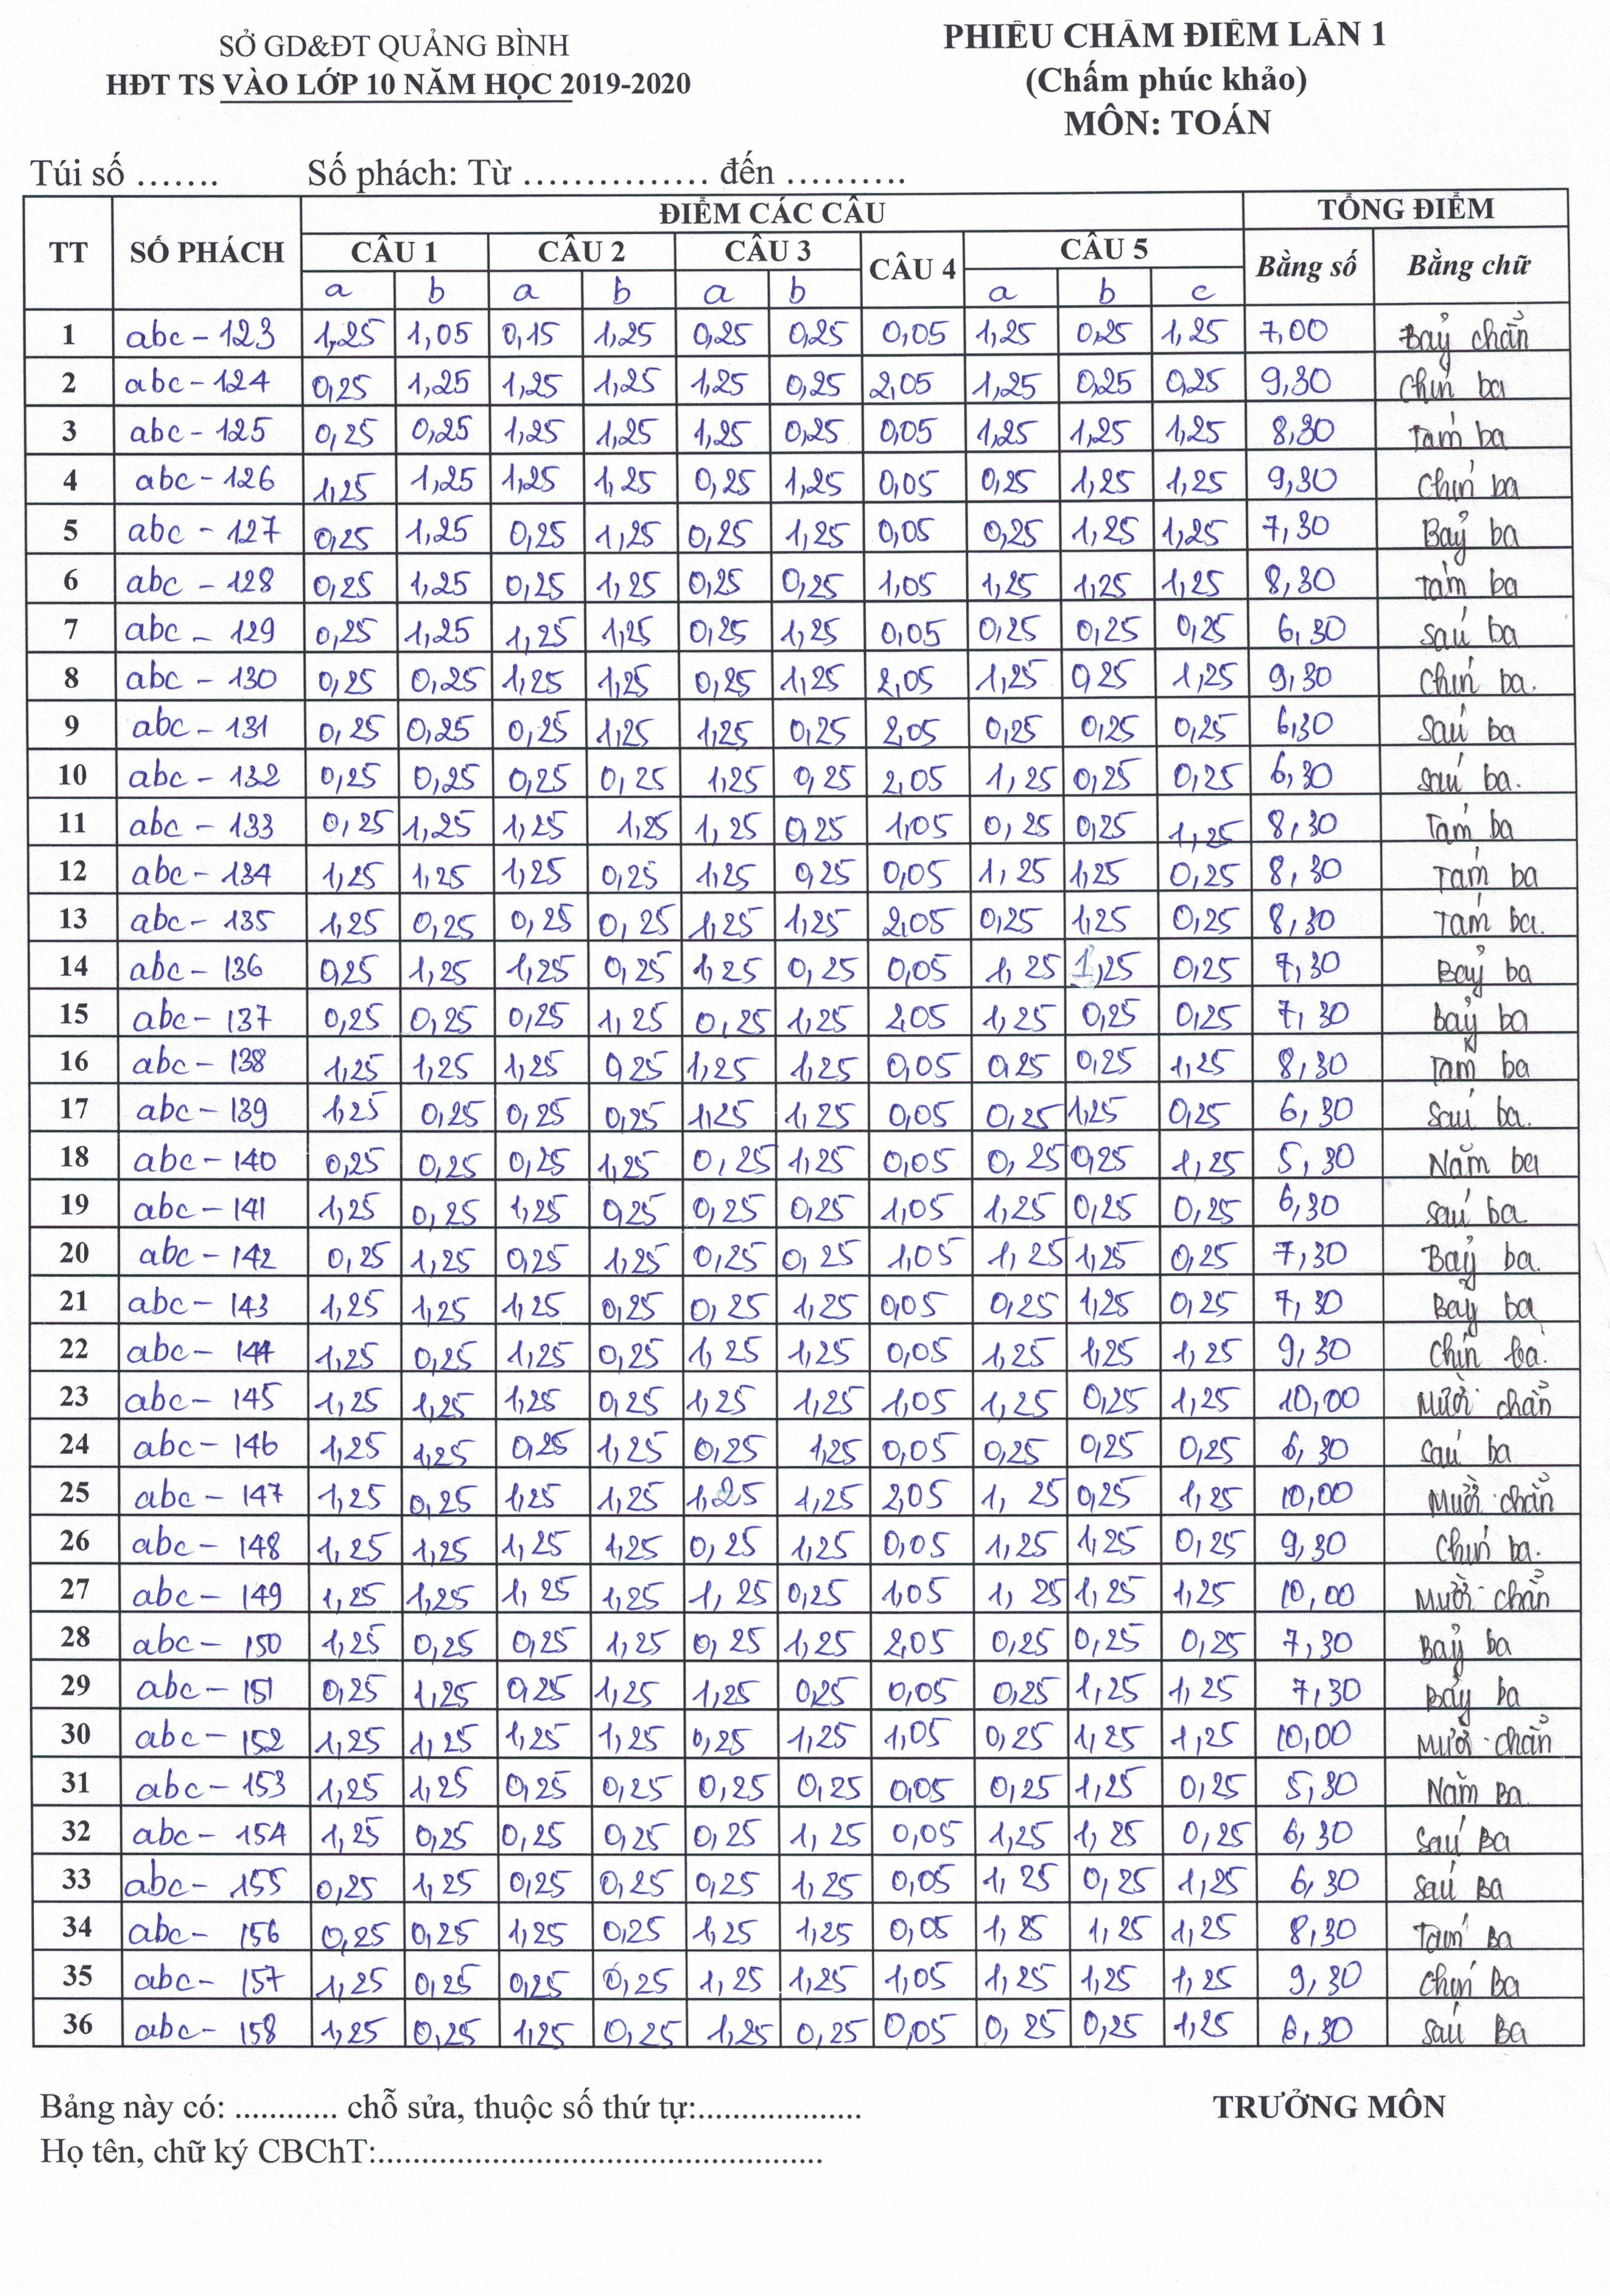 SỞ GD&ĐT QUẢNG BÌNH
HĐT TS VÀO LỚP 10 NĂM HỌC 2019-2020
PHIẾU CHẤM ĐIỂM LẦN 1
(Chấm phúc khảo)
MÔN: TOÁN
Túi số ....... Số phách: Từ ................ đến ..........
TT SỐ PHÁCH ĐIỂM CÁC CÂU TỔNG ĐIỂM
CÂU 1 CÂU 2 CÂU 3 CÂU 4 CÂU 5 Bằng số Bằng chữ
a b a b a b a b c
1 abc - 123 1,25 1,05 0,15 1,25 0,25 0,25 0,05 1,25 0,25 1,25 7,00 Bảy chẵn
2 abc - 124 0,25 1,25 1,25 1,25 1,25 0,25 2,05 1,25 0,25 0,25 9,30 Chín ba
3 abc - 125 0,25 0,25 1,25 1,25 1,25 0,25 0,05 1,25 1,25 1,25 8,30 Tám ba
4 abc - 126 1,25 1,25 1,25 1,25 0,25 1,25 0,05 0,25 1,25 1,25 9,30 Chín ba
5 abc - 127 0,25 1,25 0,25 1,25 0,25 1,25 0,05 0,25 1,25 1,25 7,30 Bảy ba
6 abc - 128 0,25 1,25 0,25 1,25 0,25 0,25 1,05 1,25 1,25 1,25 8,30 Tám ba
7 abc - 129 0,25 1,25 1,25 1,25 0,25 1,25 0,05 0,25 0,25 0,25 6,30 Sáu ba
8 abc - 130 0,25 0,25 1,25 1,25 0,25 1,25 2,05 1,25 0,25 1,25 9,30 Chín ba.
9 abc - 131 0,25 0,25 0,25 1,25 1,25 0,25 2,05 0,25 0,25 0,25 6,30 Sáu ba
10 abc - 132 0,25 0,25 0,25 0,25 1,25 0,25 2,05 1,25 0,25 0,25 6,30 Sáu ba.
11 abc - 133 0,25 1,25 1,25 1,25 1,25 0,25 1,05 0,25 0,25 1,25 8,30 Tám ba
12 abc - 134 1,25 1,25 1,25 0,25 1,25 0,25 0,05 1,25 1,25 0,25 8,30 Tám ba
13 abc - 135 1,25 0,25 0,25 0,25 1,25 1,25 2,05 0,25 1,25 0,25 8,30 Tám ba.
14 abc - 136 0,25 1,25 1,25 0,25 1,25 0,25 0,05 1,25 1,25 0,25 7,30 Bảy ba
15 abc - 137 0,25 0,25 0,25 1,25 0,25 1,25 2,05 1,25 0,25 0,25 7,30 Bảy ba
16 abc - 138 1,25 1,25 1,25 0,25 1,25 1,25 0,05 0,25 0,25 1,25 8,30 Tám ba
17 abc - 139 1,25 0,25 0,25 0,25 1,25 1,25 0,05 0,25 1,25 0,25 6,30 Sáu ba.
18 abc - 140 0,25 0,25 0,25 1,25 0,25 1,25 0,05 0,25 0,25 1,25 5,30 Năm ba
19 abc - 141 1,25 0,25 1,25 0,25 0,25 0,25 1,05 1,25 0,25 0,25 6,30 Sáu ba.
20 abc - 142 0,25 1,25 0,25 1,25 0,25 0,25 1,05 1,25 1,25 0,25 7,30 Bảy ba.
21 abc - 143 1,25 1,25 1,25 0,25 0,25 1,25 0,05 0,25 1,25 0,25 7,30 Bảy ba
22 abc - 144 1,25 0,25 1,25 0,25 1,25 1,25 0,05 1,25 1,25 1,25 9,30 Chín ba.
23 abc - 145 1,25 1,25 1,25 0,25 1,25 1,25 1,05 1,25 0,25 1,25 10,00 Mười chẵn
24 abc - 146 1,25 1,25 0,25 1,25 0,25 1,25 0,05 0,25 0,25 0,25 6,30 Sáu ba
25 abc - 147 1,25 0,25 1,25 1,25 1,25 1,25 2,05 1,25 0,25 1,25 10,00 Mười chẵn
26 abc - 148 1,25 1,25 1,25 1,25 0,25 1,25 0,05 1,25 1,25 0,25 9,30 Chín ba.
27 abc - 149 1,25 1,25 1,25 1,25 1,25 0,25 1,05 1,25 1,25 1,25 10,00 Mười chẵn
28 abc - 150 1,25 0,25 0,25 1,25 0,25 1,25 2,05 0,25 0,25 0,25 7,30 Bảy ba
29 abc - 151 0,25 1,25 0,25 1,25 1,25 0,25 0,05 0,25 1,25 1,25 7,30 Bảy ba
30 abc - 152 1,25 1,25 1,25 1,25 0,25 1,25 1,05 0,25 1,25 1,25 10,00 Mười chẵn
31 abc - 153 1,25 1,25 0,25 0,25 0,25 0,25 0,05 0,25 1,25 0,25 5,30 Năm Ba
32 abc - 154 1,25 0,25 0,25 0,25 0,25 1,25 0,05 1,25 1,25 0,25 6,30 Sáu Ba
33 abc - 155 0,25 1,25 0,25 0,25 0,25 1,25 0,05 1,25 0,25 1,25 6,30 Sáu Ba
34 abc - 156 0,25 0,25 1,25 0,25 1,25 1,25 0,05 1,25 1,25 1,25 8,30 Tám Ba
35 abc - 157 1,25 0,25 0,25 0,25 1,25 1,25 1,05 1,25 1,25 1,25 9,30 Chín Ba
36 abc - 158 1,25 0,25 1,25 0,25 1,25 0,25 0,05 0,25 0,25 1,25 6,30 Sáu Ba
Bảng này có: ............ chỗ sửa, thuộc số thứ tự:...................
TRƯỞNG MÔN
Họ tên, chữ ký CBChT:...................................................